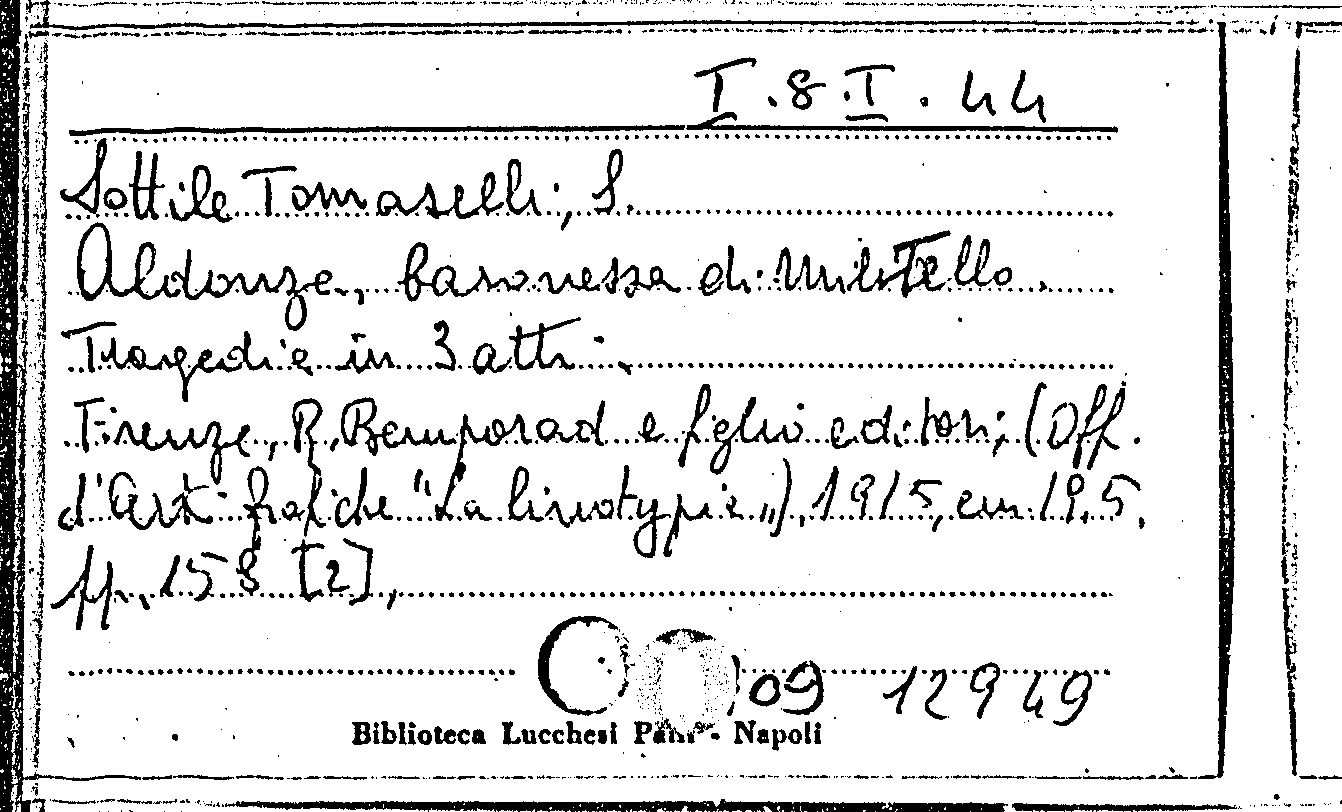 I.8.I.44
Sottile Tomaselli, S.
Aldonza, baronessa di Militello.
Tragedia in 3 atti.
Firenze, R. Bemporad e figlio editori, (Off.
d'Arti grafiche "La linotypia"), 1915, cm 19,5,
pp. 158 [2],
09 12949
Biblioteca Lucchesi Palli - Napoli